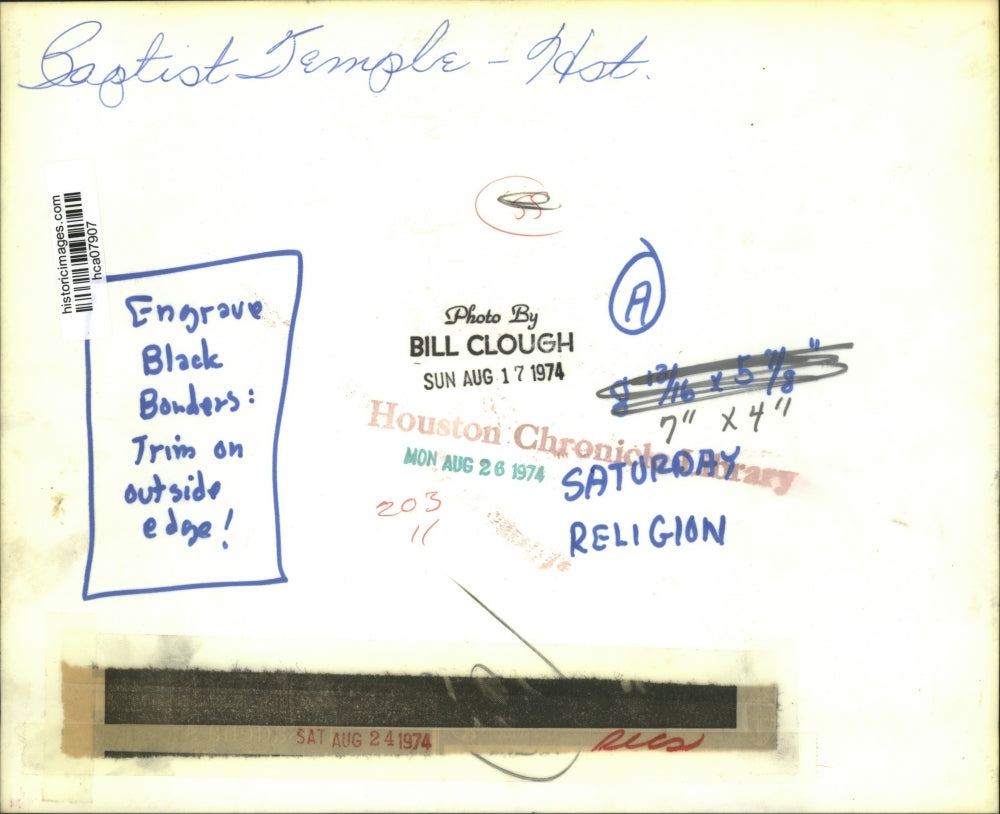 Baptist Temple - Hst.
historicimages.com
hca07907
55
A
Engrave
Black
Borders:
Trim on
outside
edge!
Photo By
BILL CLOUGH
SUN AUG 17 1974
8 13/16 x 5 7/8"
7" x 4"
Houston Chronicle Library
MON AUG 26 1974
SATURDAY
RELIGION
203
11
SAT AUG 24 1974